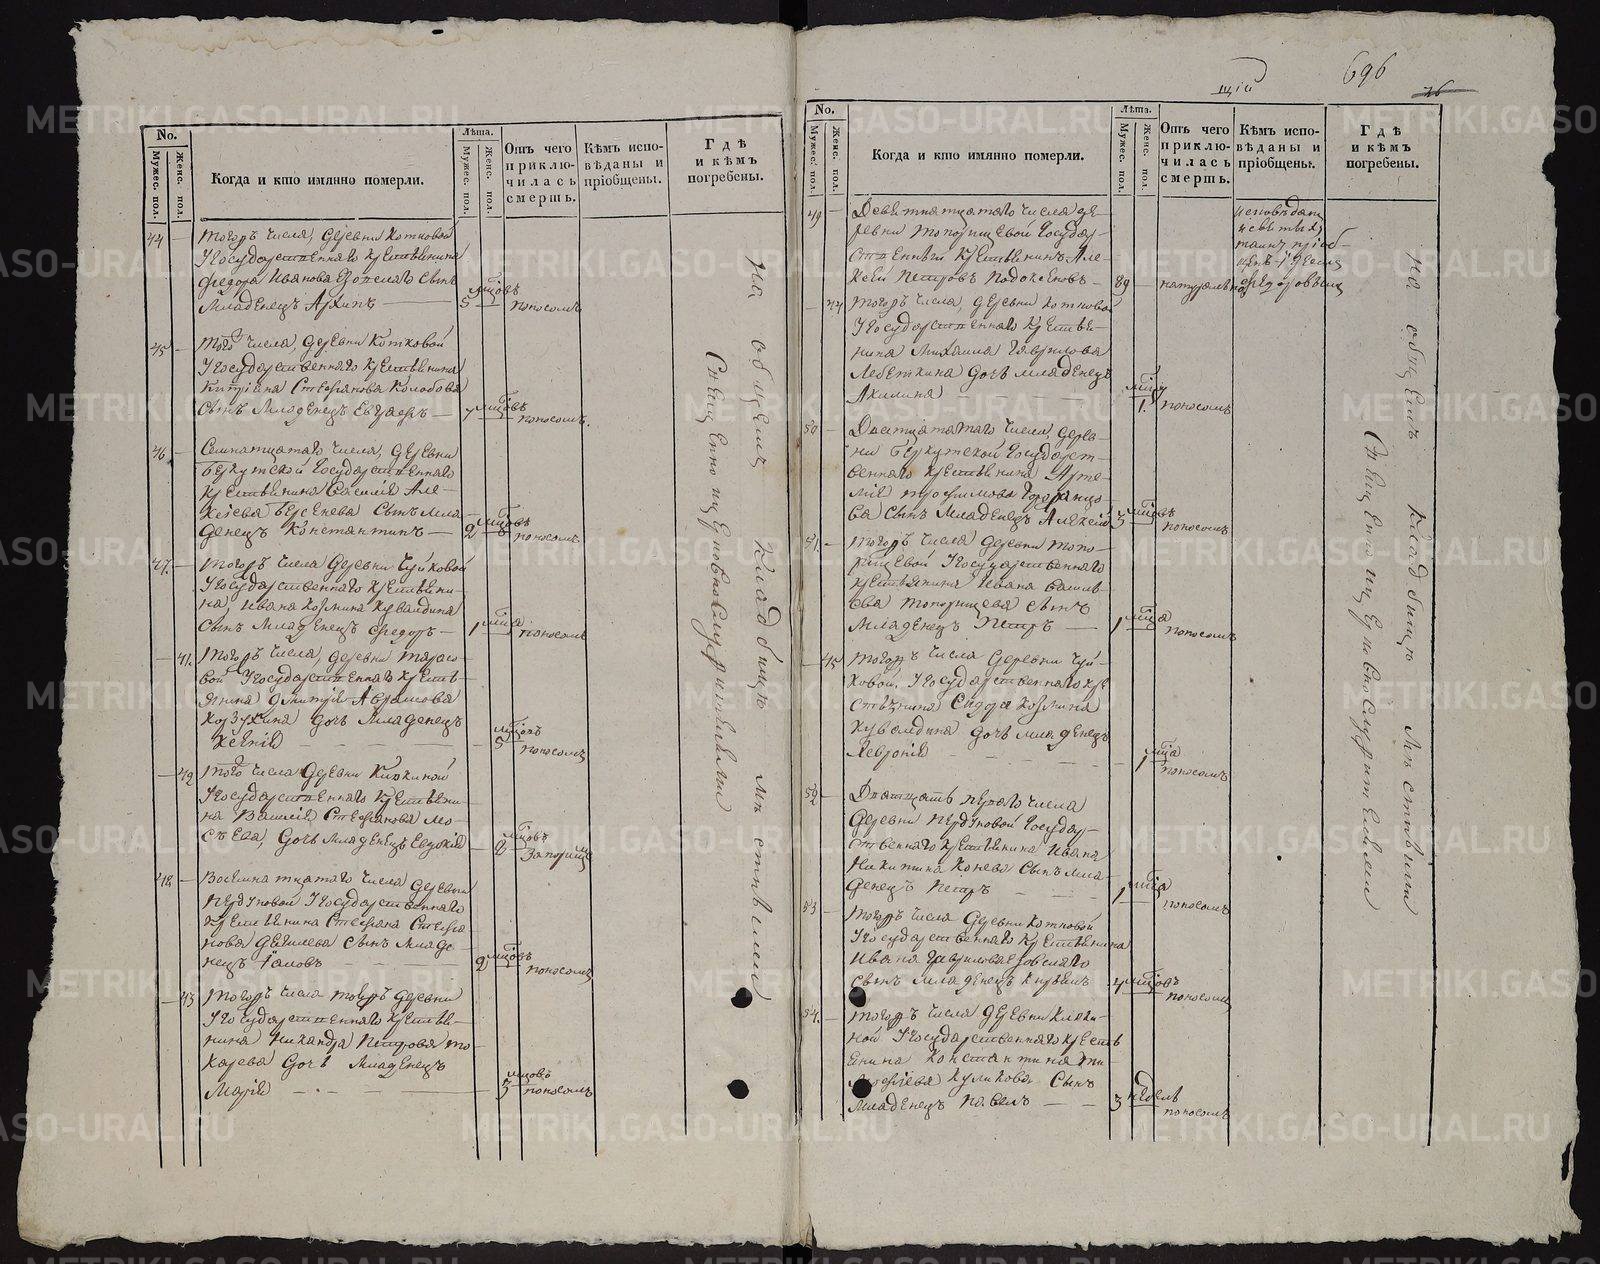 No.
Мужес. пол.
Женс. пол.
Когда и кто имянно померли.
Лѣта.
Мужес. пол.
Женс. пол.
Отъ чего
приклю-
чилась
смерть.
Кѣмъ испо-
вѣданы и
пріобщены.
Гдѣ
и кѣмъ
погребены.
44
Тогожъ числа, деревни Котковой
Государственнаго крестьянина
Федора Иванова сынъ
Младенецъ Архипъ
5 мцовъ
поносомъ
45
Того числа, деревни Котковой
Государственнаго крестьянина
Стефанова Колобова
сынъ Младенецъ Евграфъ
7 мцовъ
поносомъ.
46
Семнатцатаго числа, деревни
Беркутской Государственнаго
крестьянина Василія Але-
ксіева Берсенева сынъ мла-
денецъ Константинъ
2 мцовъ
поносомъ
47.
Тогожъ числа деревни Чуйковой
Государственнаго крестьяни-
на, Ивана Козмина Кувалдина
сынъ Младенецъ Федоръ
1 мца
поносомъ
41.
Тогожъ числа, деревни Тарасо-
вой Государственнаго кресть-
янина Димитрія Аврамова
Козухина дочь Младенецъ
Ксенія
5 мцовъ
поносомъ
42
Того числа деревни
Государственнаго крестьяни-
на Василія Стефанова Мо-
сѣева, дочь младенецъ Евдокія
2 мцовъ
48.
Восемнатцатаго числа деревни
Пердуновой Государственнаго
крестьянина Стефана Стефа-
нова сынъ младе-
нецъ Іаковъ
2 мцовъ
поносомъ
43
Тогожъ числа тойжъ деревни
Государственнаго крестья-
нина Никандра Петрова То-
карева дочь младенецъ
Марія
3 мцовъ
поносомъ
На общемъ кладбищѣ
696
26
No.
Мужес. пол.
Женс. пол.
Когда и кто имянно померли.
Лѣта.
Мужес. пол.
Женс. пол.
Отъ чего
приклю-
чилась
смерть.
Кѣмъ испо-
вѣданы и
пріобщены.
Гдѣ
и кѣмъ
погребены.
49
Девятнатцатаго числа де-
ревни Топорищевой Государ-
ственный крестьянинъ Але-
ксѣй Петровъ Подоксеновъ
89
натурально
исповѣданъ
и святыхъ
таинъ пріоб-
щенъ іереемъ
Федоровымъ
44
Тогожъ числа, деревни Котковой
Государственнаго крестья-
нина Михаила Гаврилова
Лебеткина дочь младенецъ
Акилина
1. мцу
поносомъ
50
Дватцатаго числа, дерев-
ни Беркутской Государст-
веннаго крестьянина Арте-
мія Трофимова
сынъ младенецъ Алексій
3 мцовъ
поносомъ
51.
Тогожъ числа деревни Топо-
рищевой Государственнаго
крестьянина Ивана Василь-
ева Топорищева сынъ
младенецъ Петръ
1 мца
поносомъ
45
Тогожъ числа деревни Чуй-
ковой, Государственнаго кре-
стьянина Сидора Козмина
Кувалдина дочь младенецъ
Февронія
1 мца
поносомъ
52
Дватцать перваго числа
деревни Пердуновой Государ-
ственнаго крестьянина Ивана
Никитина Конева сынъ мла-
денецъ Петръ
1 мца
поносомъ
53
Тогожъ числа деревни Котковой
Государственнаго крестьянина
Ивана Гаврилова
сынъ младенецъ
4 мцовъ
поносомъ
54.
Тогожъ числа деревни
Государственнаго кресть
янина Константина Ти-
мофіева Куликова сынъ
младенецъ Павелъ
3 недель
поносомъ
На общемъ кладбищѣ